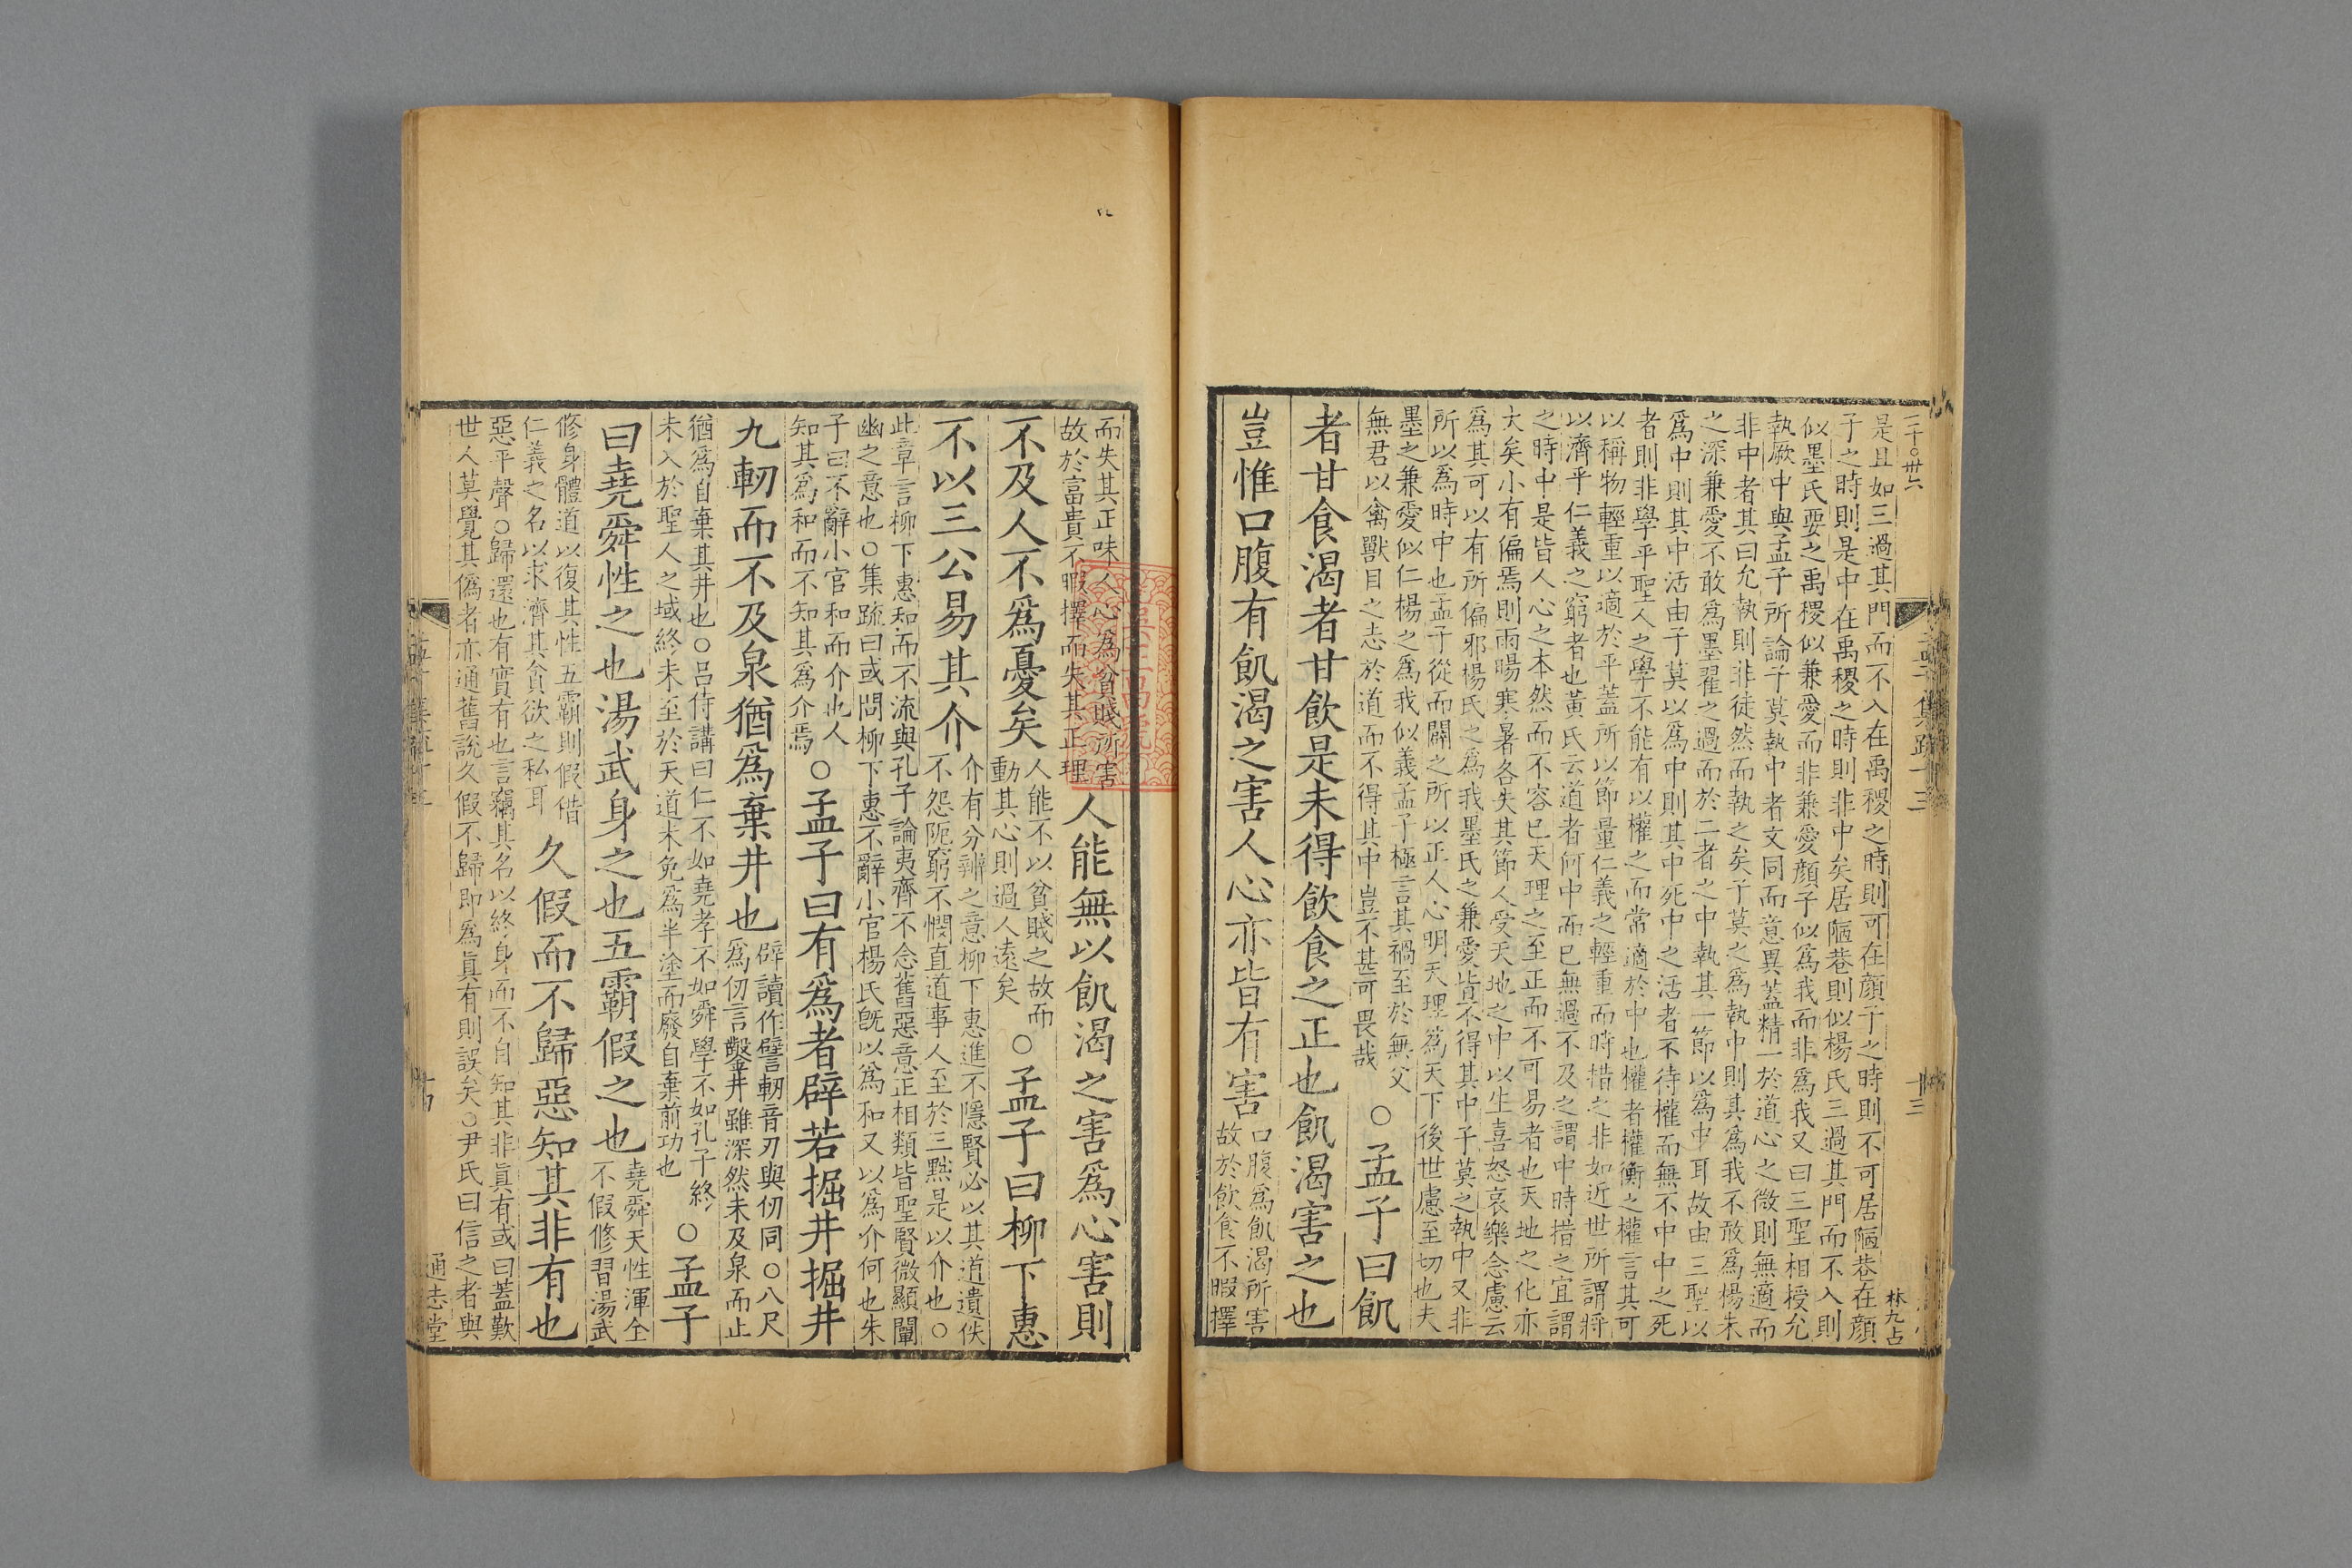 二十〇卅六
孟子集疏十三
十三
林九占
是且如三過其門而不入在禹稷之時則可在顔子之時則不可居陋巷在顔
子之時則是中在禹稷之時則非中矣居陋巷則似楊氏三過其門而不入則
似墨氏要之禹稷似兼愛而非兼愛顔子似爲我而非爲我又曰三聖相授允
執厥中與孟子所論子莫執中者文同而意異葢精一於道心之微則無適而
非中者其曰允執則非徒然而執之矣子莫之爲執中則其爲我不敢爲楊朱
之深兼愛不敢爲墨翟之過而於二者之中執其一節以爲中耳故由三聖以
爲中則其中活由子莫以爲中則其中死中之活者不待權而無不中中之死
者則非學乎聖人之學不能有以權之而常適於中也權者權衡之權言其可
以稱物輕重以適於平葢所以節量仁義之輕重而時措之非如近世所謂將
以濟乎仁義之窮者也黃氏云道者何中而已無過不及之謂中時措之宜謂
之時中是皆人心之本然而不容已天理之至正而不可易者也天地之化亦
大矣小有偏焉則雨暘寒暑各失其節人受天地之中以生喜怒哀樂念慮云
爲其可以有所偏邪楊氏之爲我墨氏之兼愛皆不得其中子莫之執中又非
所以爲時中也孟子從而闢之所以正人心明天理爲天下後世慮至切也夫
墨之兼愛似仁楊之爲我似義孟子極言其禍至於無父
無君以禽獸目之志於道而不得其中豈不甚可畏哉
〇孟子曰飢
者甘食渴者甘飲是未得飲食之正也飢渴害之也
豈惟口腹有飢渴之害人心亦皆有害
口腹爲飢渴所害
故於飲食不暇擇
而失其正味人心爲貧賤所害
故於富貴不暇擇而失其正理
人能無以飢渴之害爲心害則
不及人不爲憂矣
人能不以貧賤之故而
動其心則過人遠矣
〇孟子曰柳下惠
不以三公易其介
介有分辨之意柳下惠進不隱賢必以其道遺佚
不怨阨窮不憫直道事人至於三黜是以介也〇
此章言柳下惠和而不流與孔子論夷齊不念舊惡意正相類皆聖賢微顯闡
幽之意也〇集疏曰或問柳下惠不辭小官楊氏旣以爲和又以爲介何也朱
子曰不辭小官和而介也人
知其爲和而不知其爲介焉
〇孟子曰有爲者辟若掘井掘井
九軔而不及泉猶爲棄井也
辟讀作譬軔音刃與仞同〇八尺
爲仞言鑿井雖深然未及泉而止
猶爲自棄其井也〇呂侍講曰仁不如堯孝不如舜學不如孔子終
未入於聖人之域終未至於天道未免爲半塗而廢自棄前功也
〇孟子
曰堯舜性之也湯武身之也五霸假之也
堯舜天性渾全
不假修習湯武
修身體道以復其性五霸則假借
仁義之名以求濟其貪欲之私耳
久假而不歸惡知其非有也
惡平聲〇歸還也有實有也言竊其名以終身而不自知其非眞有或曰蓋歎
世人莫覺其僞者亦通舊說久假不歸即爲眞有則誤矣〇尹氏曰信之者與
十四
通志堂